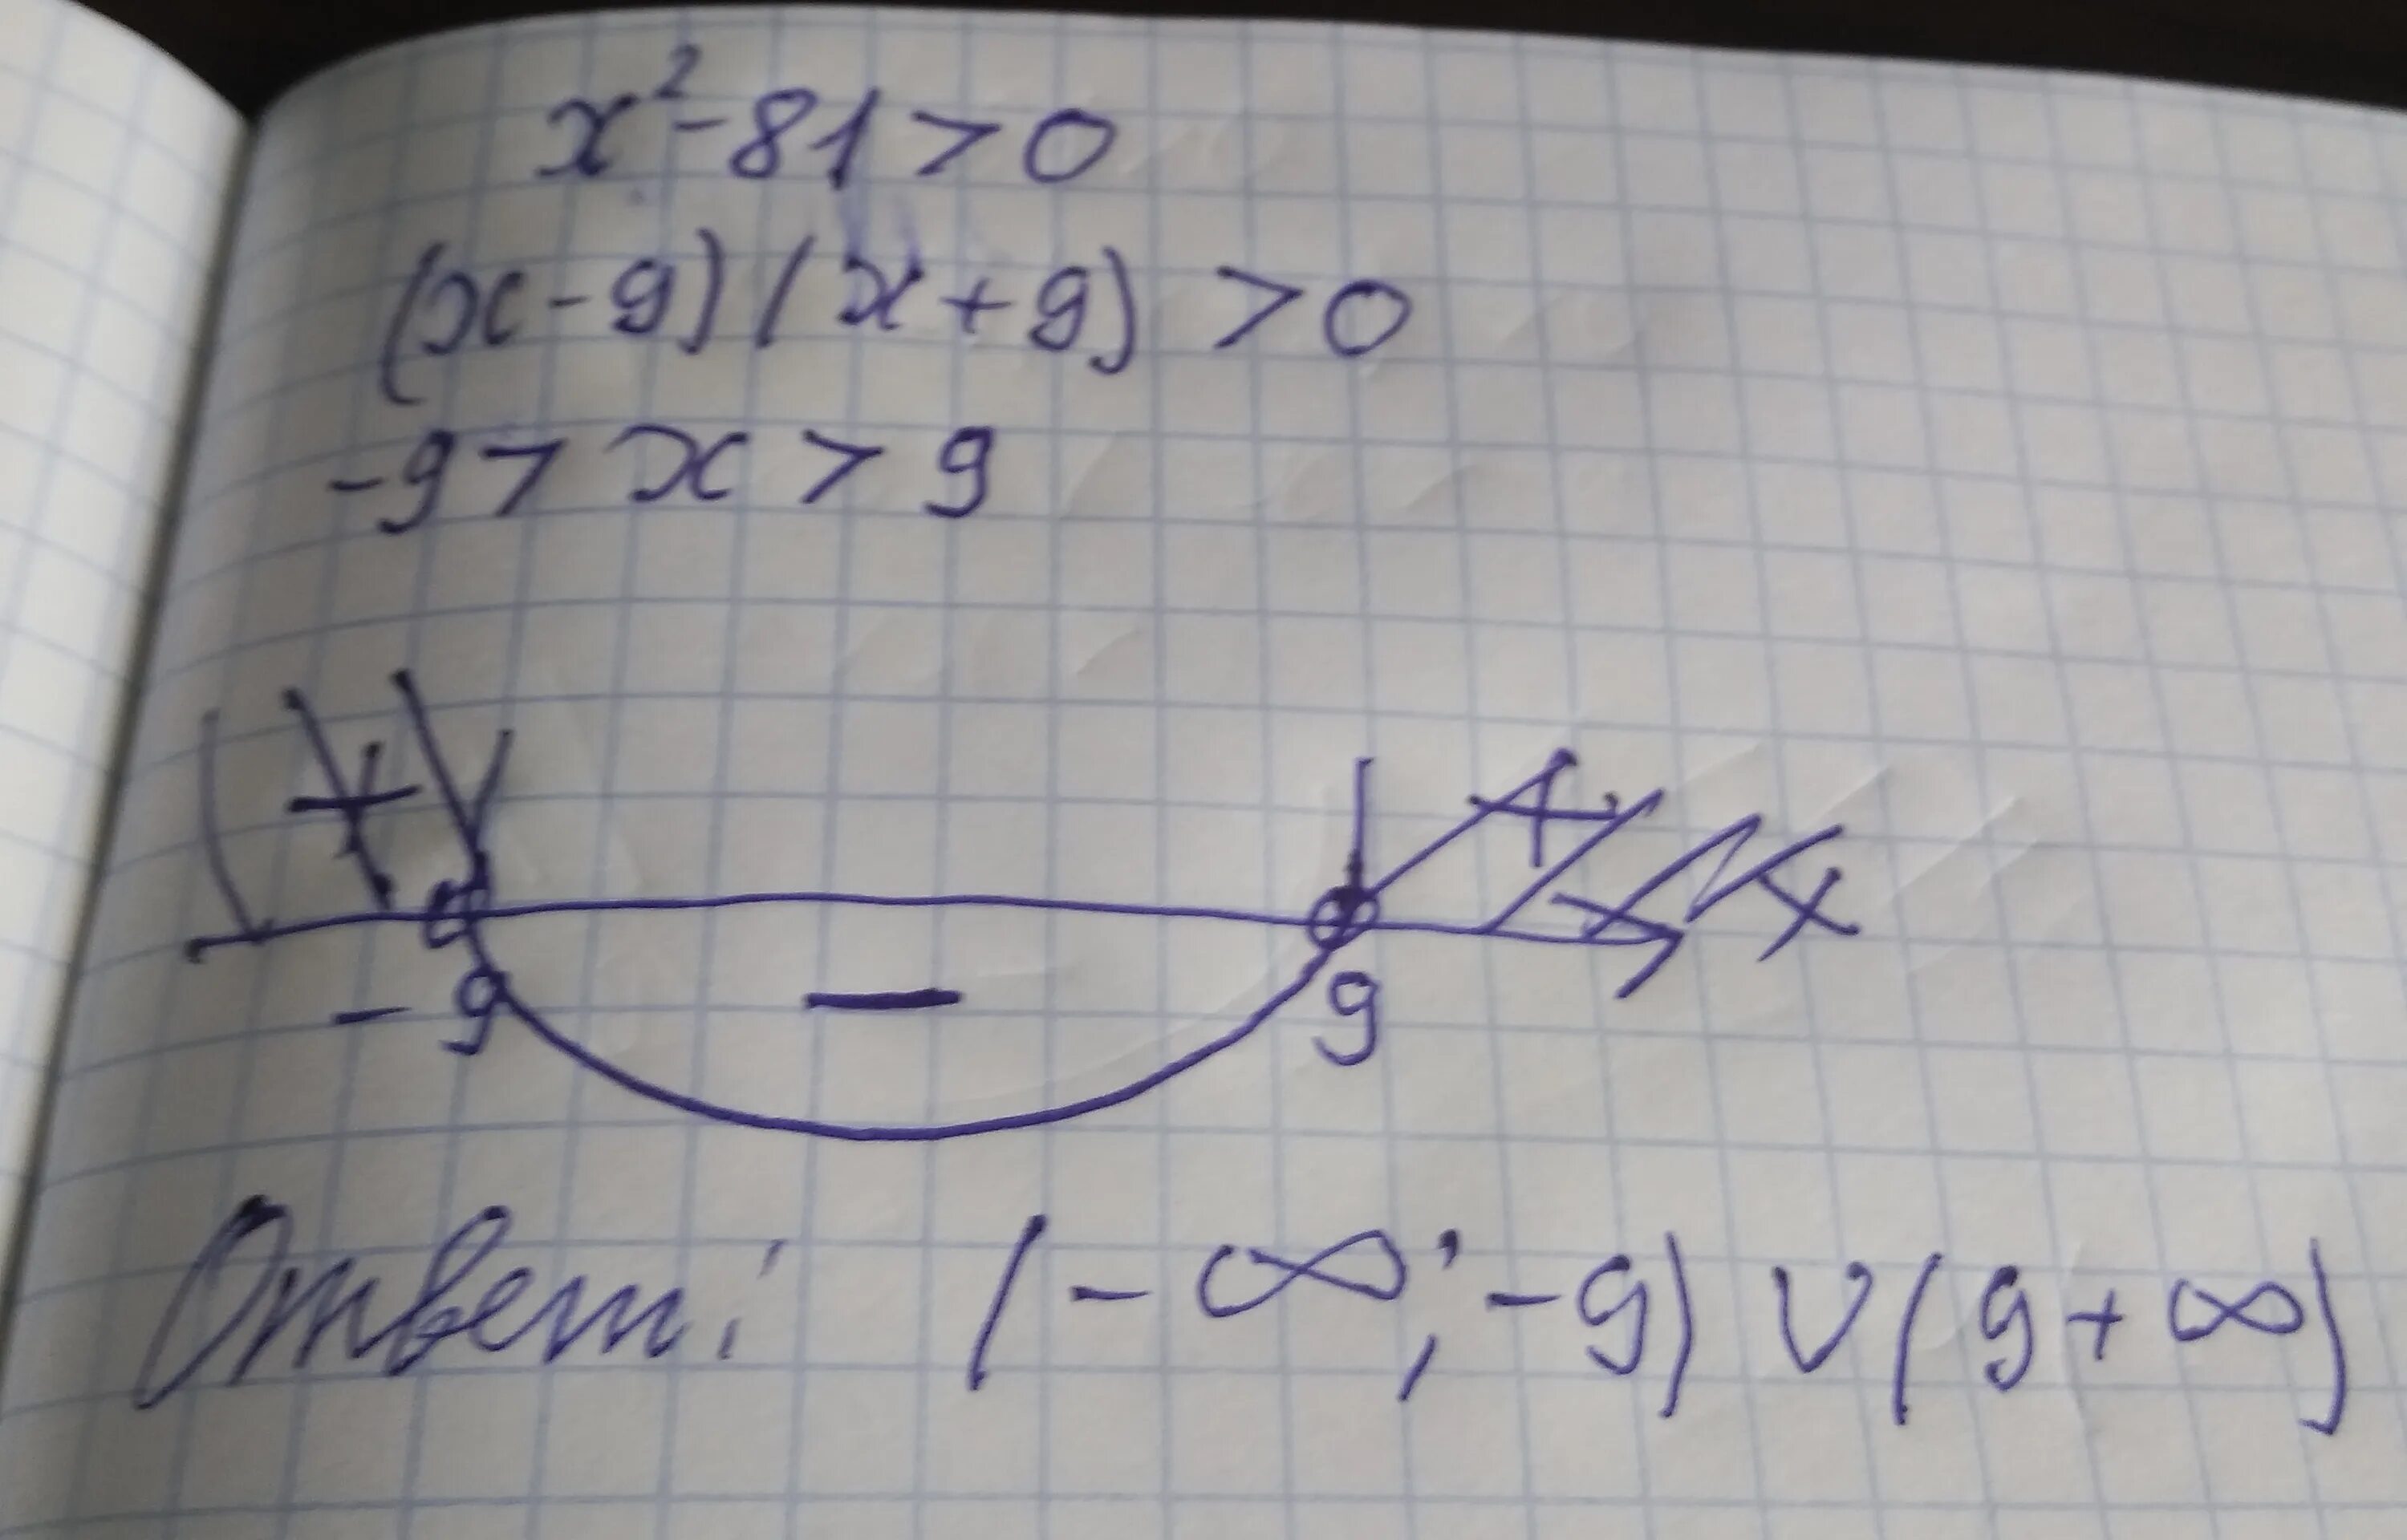 x²-81>0
(x-9)(x+9)>0
-9>x>9
+ +
x
-
-9 9
Ответ: (-∞; -9) ∪ (9+∞)